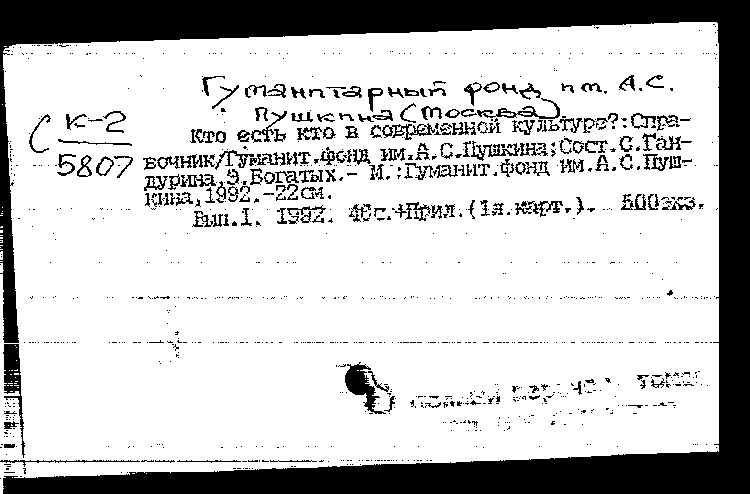 Гуманитарный фонд им. А.С.
Пушкина (Москва)
С К-2
5807
Кто есть кто в современной культуре?:Спра-
вочник/Гуманит.фонд им.А.С.Пушкина;Сост.С.Ган-
дурина,Э.Богатых.- М.:Гуманит.фонд им.А.С.Пуш-
кина,1992.-22см.
Вып.1. 1992. 46с.+Прил.(1л.карт.). 500экз.